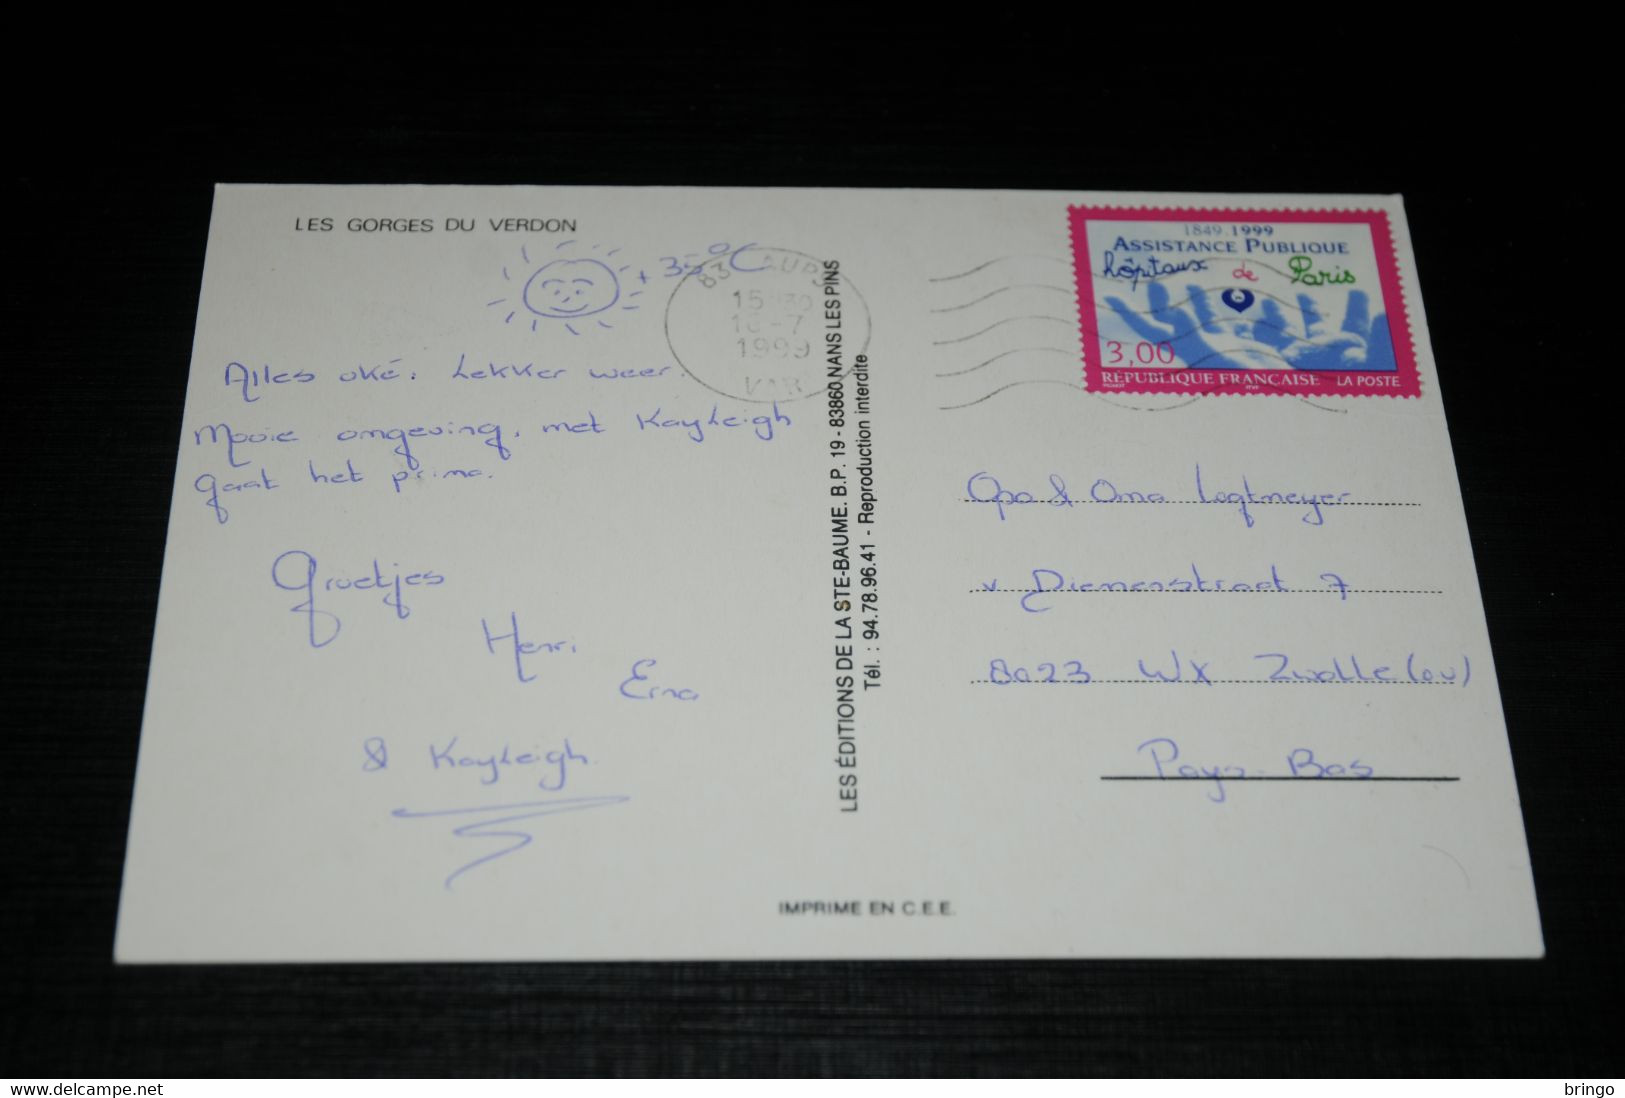 LES GORGES DU VERDON
+ 35°C
Alles oké. Lekker weer.
Mooie omgeving, met Kayleigh
gaat het prima.
Groetjes
Henri
Erna
& Kayleigh
83 AUPS
15 30
1999
VAR
LES ÉDITIONS DE LA STE-BAUME. B.P. 19 - 83860 NANS LES PINS
Tél. : 94.78.96.41 - Reproduction interdite
1849.1999
ASSISTANCE PUBLIQUE
hôpitaux de Paris
3,00
RÉPUBLIQUE FRANÇAISE LA POSTE
Opa & Oma Logtmeyer
v Diemenstraat 7
8023 WX Zwolle (ov)
Pays-Bas
IMPRIME EN C.E.E.
https://www.delcampe.net
bringo